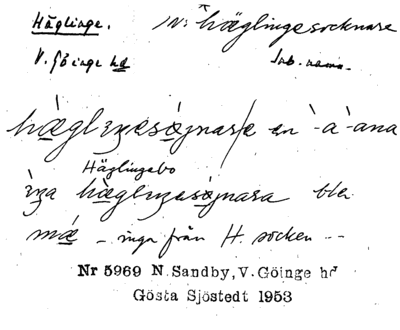 Häglinge. N: häglingesocknare
V. Göinge hd Inb. namn.
hæglingesógnare en -a -ana
Häglingebo
inga hæglingesógnara ble
mæ – inga från H. socken --
Nr 5969 N. Sandby, V. Göinge hd
Gösta Sjöstedt 1953